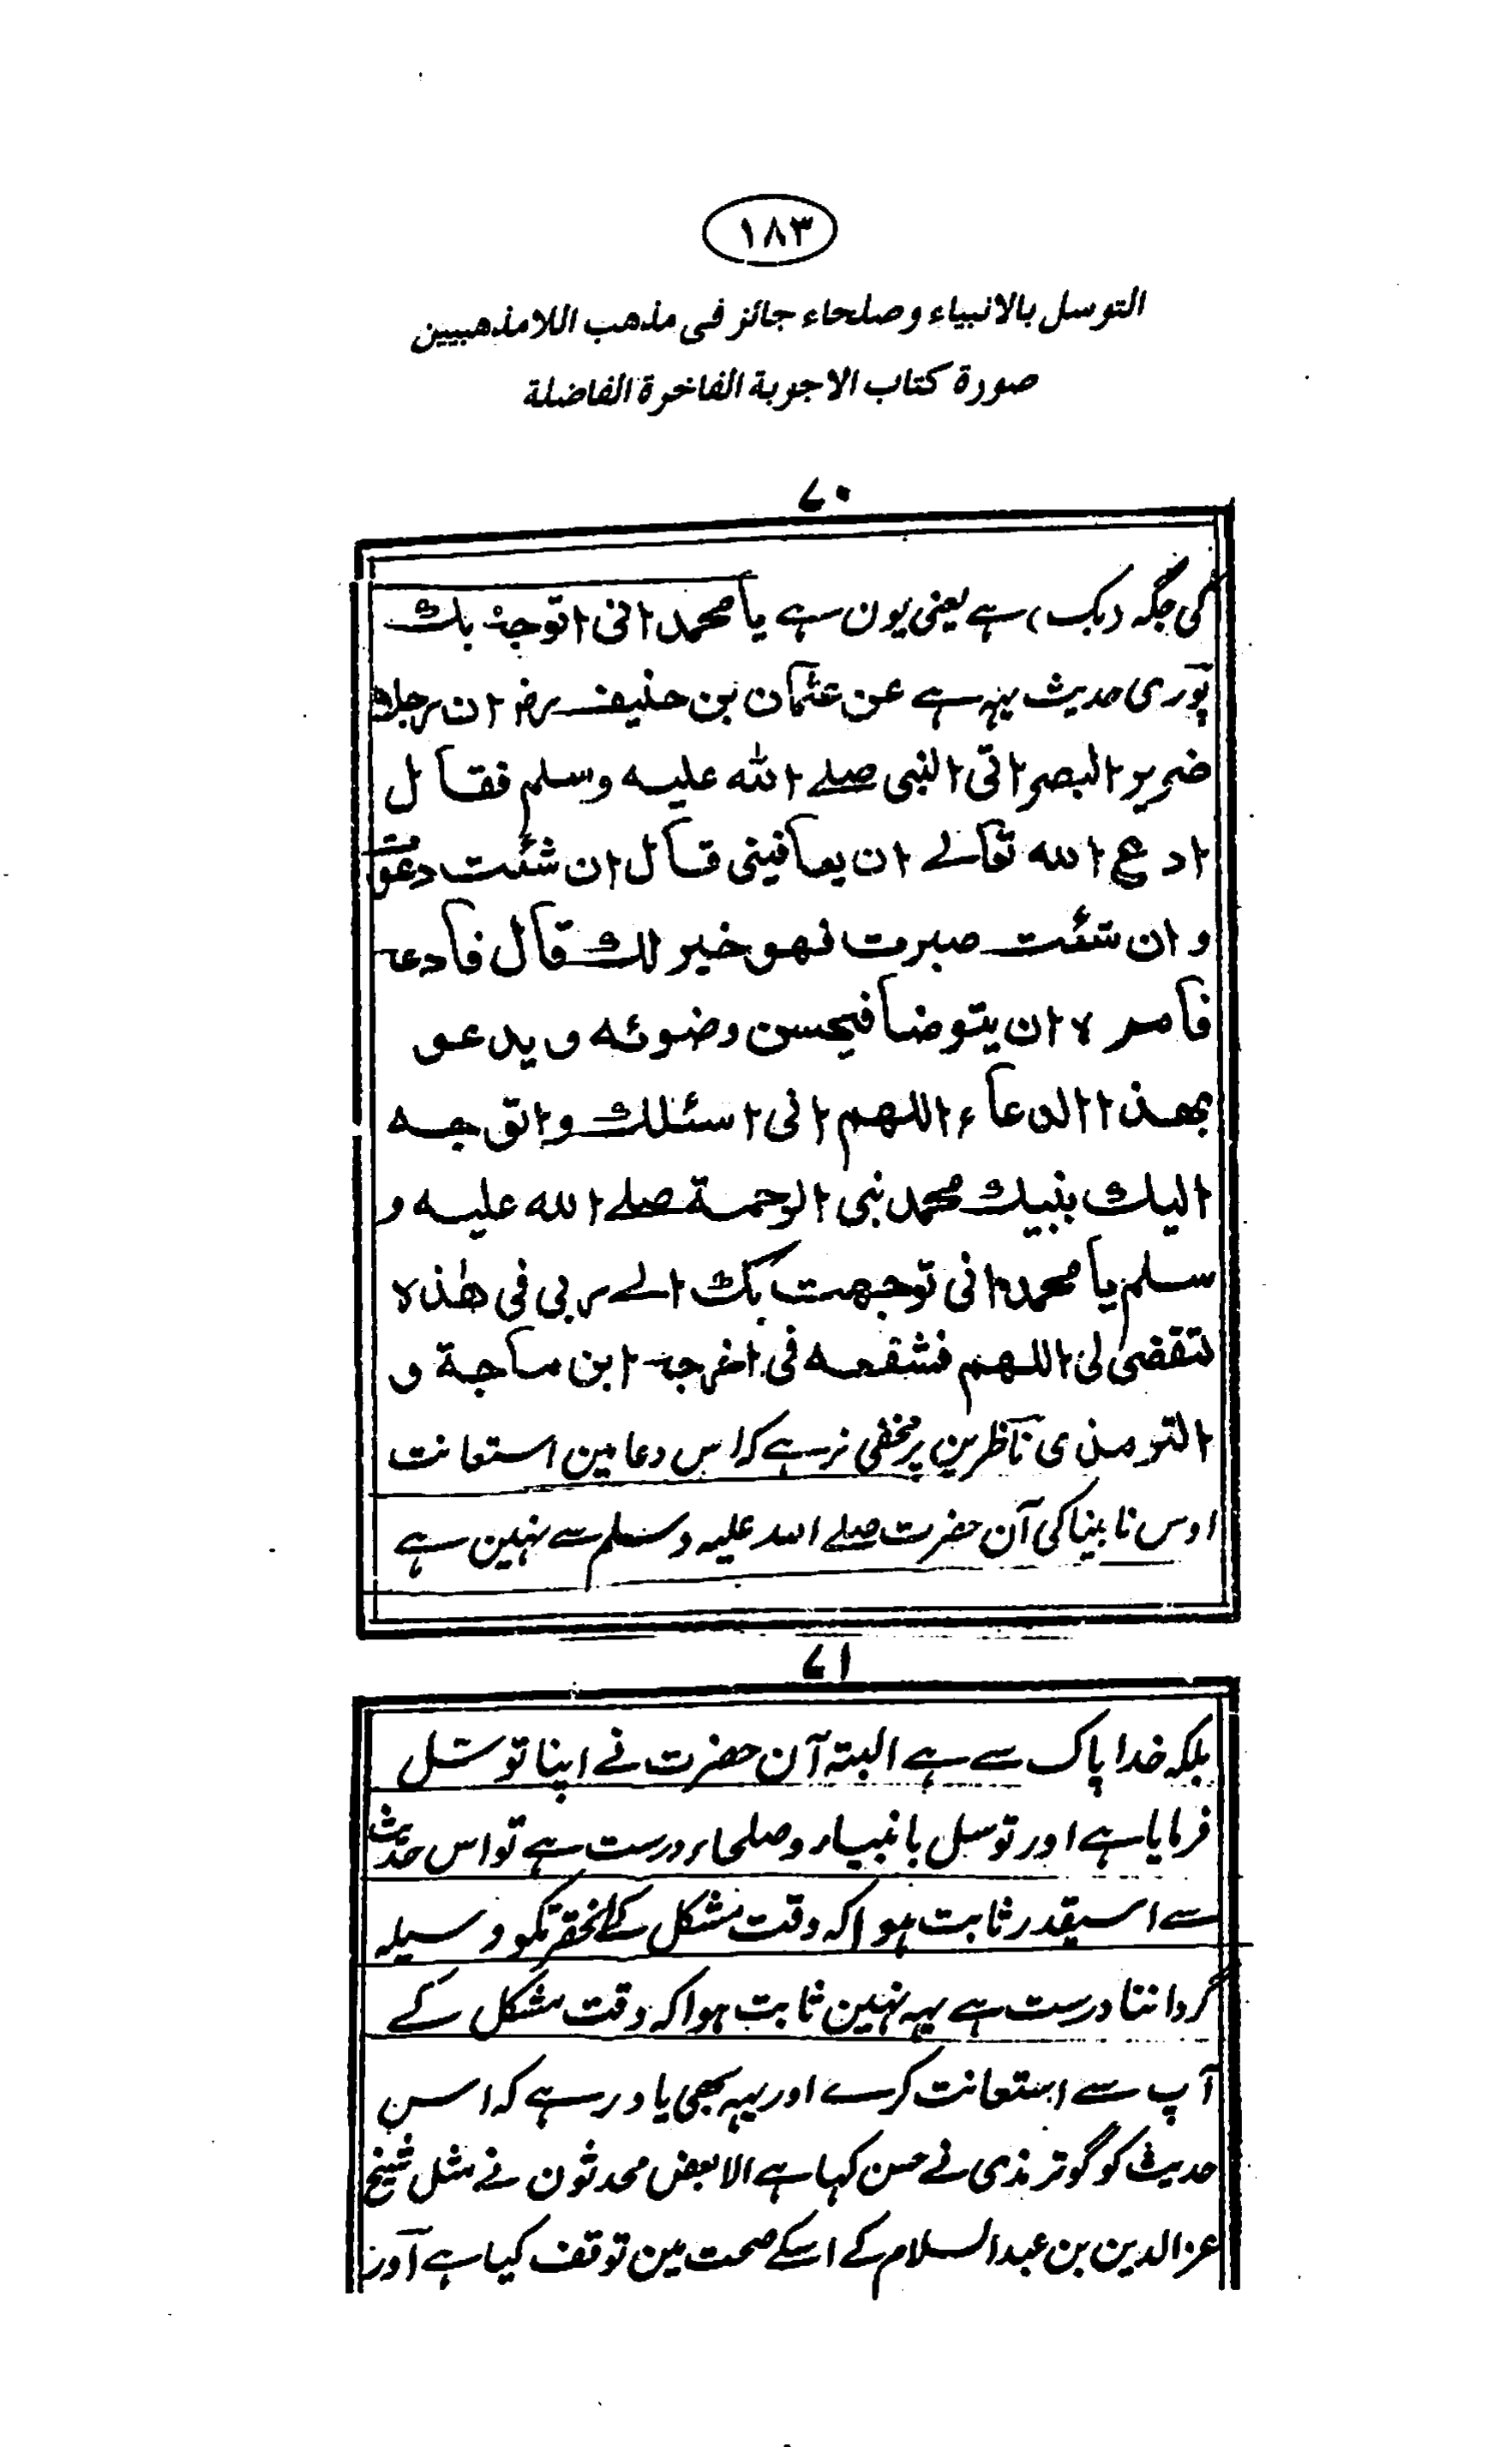 ١٨٣
التوسل بالانبياء وصلحاء جائز في مذهب اللامذهبيين
صورة كتاب الاجوبة الفاخرة الفاضلة
۷۰
کی جگہ (بک) ہے یعنی یون ہے یا محمد انی اتوجہ بك
پوری حدیث یہہ ہے عن عثمان بن حنیف رضہ ان رجلا
ضریر البصر اتی النبی صلے اللہ علیہ وسلم فقال
ادع اللہ تعالے ان یعافینی قال ان شئت دعوت
وان شئت صبرت فهو خیر لك قال فادعہ
فامرہ ان یتوضا فیحسن وضوئه ویدعو
بهذا الدعاء اللهم انی اسئلك واتوجه
الیك بنبیك محمد نبی الرحمة صلے الله علیه و
سلم یا محمد انی توجهت بك الے ربی فی هٰذہ
لتقضیٰ لی اللهم فشفعه فی اخرجہ ابن ماجة و
الترمذی ناظرین پر مخفی نرہے کہ اس دعا مین استعانت
اوس نابینا کی آن حضرت صلے اللہ علیہ وسلم سے نہین ہے
۷۱
بلکہ خدا پاک سے ہے البتہ آن حضرت نے اپنا توسل
فرمایا ہے اور توسل بانبیاء وصلحاء درست ہے تو اس حدیث
سے اسیقدر ثابت ہوا کہ وقت مشکل کے آنحضرتکو وسیلہ
گرداننا درست ہے یہہ نہین ثابت ہوا کہ وقت مشکل کے
آپ سے استعانت کرے اور یہہ بھی یاد رہے کہ اس
حدیث کو گو ترمذی نے حسن کہا ہے الا بعض محدثون نے مثل شیخ
عز الدین بن عبد السلام کے اسکے صحت مین توقف کیا ہے اور